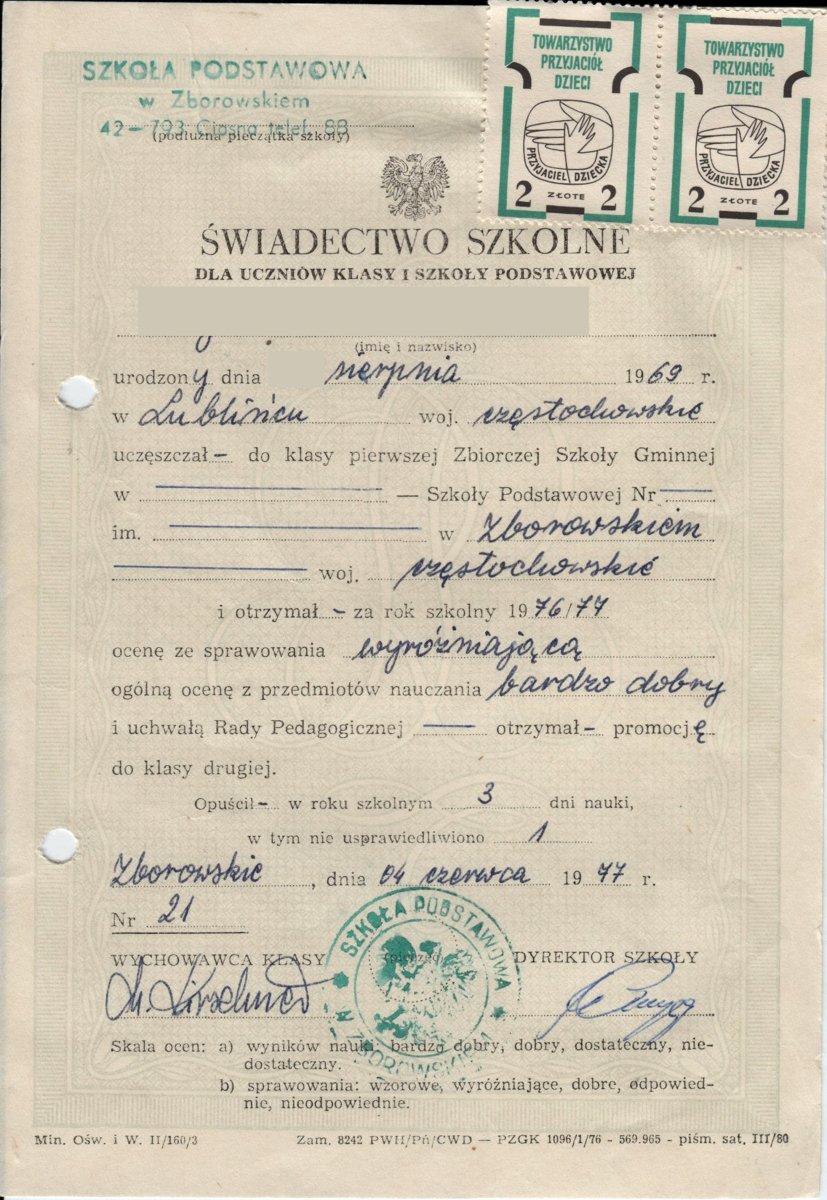 SZKOŁA PODSTAWOWA
w Zborowskiem
42-793 Ciasna telef. 88
(podłużna pieczątka szkoły)
TOWARZYSTWO
PRZYJACIÓŁ
DZIECI
PRZYJACIEL DZIECKA
2 ZŁOTE 2
TOWARZYSTWO
PRZYJACIÓŁ
DZIECI
PRZYJACIEL DZIECKA
2 ZŁOTE 2
ŚWIADECTWO SZKOLNE
DLA UCZNIÓW KLASY I SZKOŁY PODSTAWOWEJ
(imię i nazwisko)
urodzony dnia sierpnia 1969 r.
w Lublińcu woj. częstochowskie
uczęszczał – do klasy pierwszej Zbiorczej Szkoły Gminnej
w — Szkoły Podstawowej Nr
im. w Zborowskiem
woj. częstochowskie
i otrzymał – za rok szkolny 1976/77
ocenę ze sprawowania wyróżniającą
ogólną ocenę z przedmiotów nauczania bardzo dobry
i uchwałą Rady Pedagogicznej — otrzymał – promocję
do klasy drugiej.
Opuścił – w roku szkolnym 3 dni nauki,
w tym nie usprawiedliwiono 1
Zborowskie, dnia 04 czerwca 1977 r.
Nr 21
WYCHOWAWCA KLASY (pieczęć) DYREKTOR SZKOŁY
SZKOŁA PODSTAWOWA W ZBOROWSKIEM
Skala ocen: a) wyników nauki: bardzo dobry, dobry, dostateczny, nie-
dostateczny.
b) sprawowania: wzorowe, wyróżniające, dobre, odpowied-
nie, nieodpowiednie.
Min. Ośw. i W. II/160/3 Zam. 8242 PWH/Pń/CWD — PZGK 1096/1/76 - 569.965 - piśm. sat. III/80